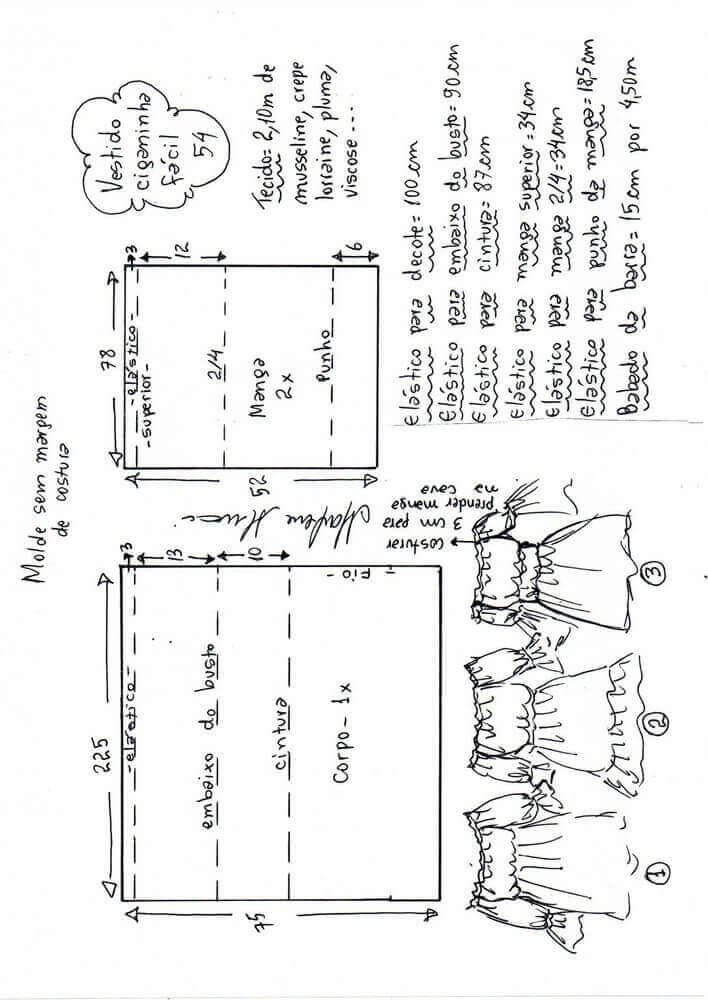 Molde sem margem
de costura
225
- elástico -
3
13
embaixo do busto
10
cintura
Corpo - 1x
- Fio -
75
78
- elástico -
- superior -
3
12
2/4
Manga
2x
Punho
6
52
Vestido
ciganinha
fácil
54
Tecido = 2,10m de
musseline, crepe
lorraine, pluma,
viscose ...
Elástico para decote = 100cm
Elástico para embaixo do busto = 90cm
Elástico para cintura = 87cm
Elástico para manga superior = 34cm
Elástico para manga 2/4 = 34cm
Elástico para punho da manga = 18,5cm
Babado da barra = 15cm por 4,50m
costurar
3 cm para
prender manga
na cava
1
2
3